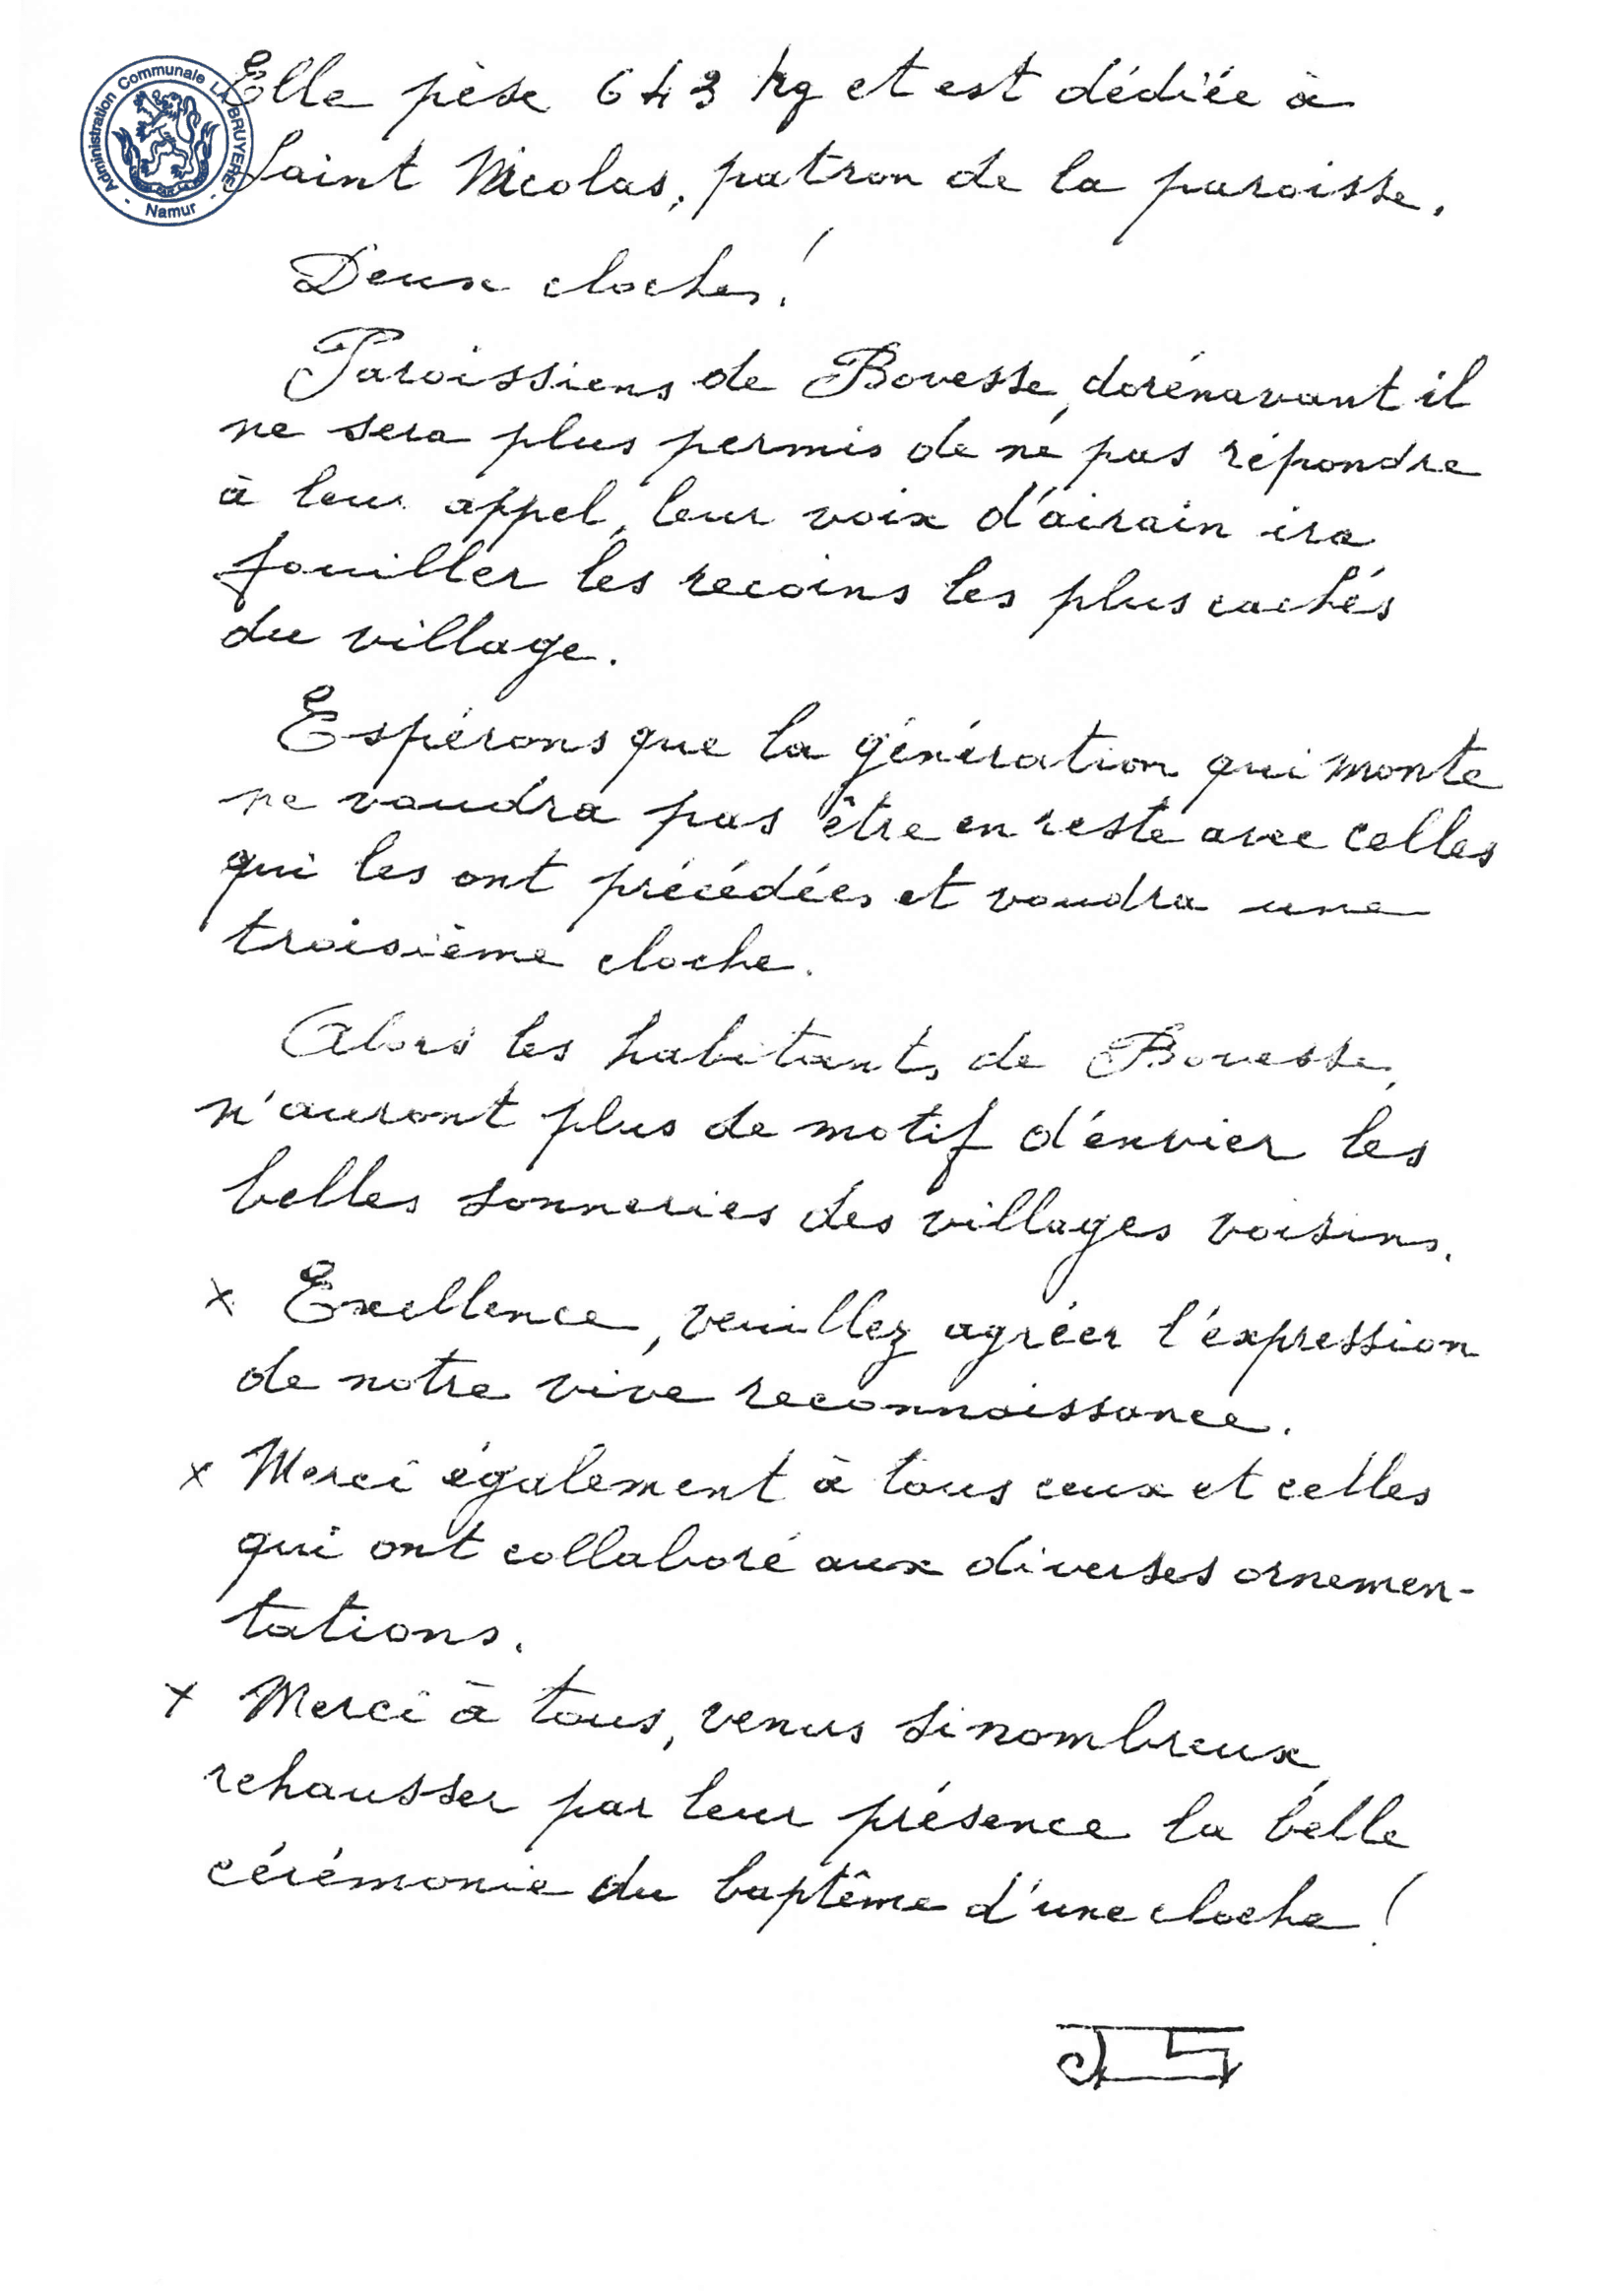 Administration Communale LA BRUYERE
- Namur -
Elle pèse 643 kg et est dédiée à
Saint Nicolas, patron de la paroisse.
Deux cloches!
Paroissiens de Bovesse, dorénavant il
ne sera plus permis de ne pas répondre
à leur appel, leur voix d'airain ira
fouiller les recoins les plus cachés
du village.
Espérons que la génération qui monte
ne voudra pas être en reste avec celles
qui les ont précédées et voudra une
troisième cloche.
Alors les habitants de Bovesse,
n'auront plus de motif d'envier les
belles sonneries des villages voisins.
x Excellence, veuillez agréer l'expression
de notre vive reconnaissance.
x Merci également à tous ceux et celles
qui ont collaboré aux diverses ornemen-
tations.
x Merci à tous, venus si nombreux,
rehausser par leur présence la belle
cérémonie du baptême d'une cloche!